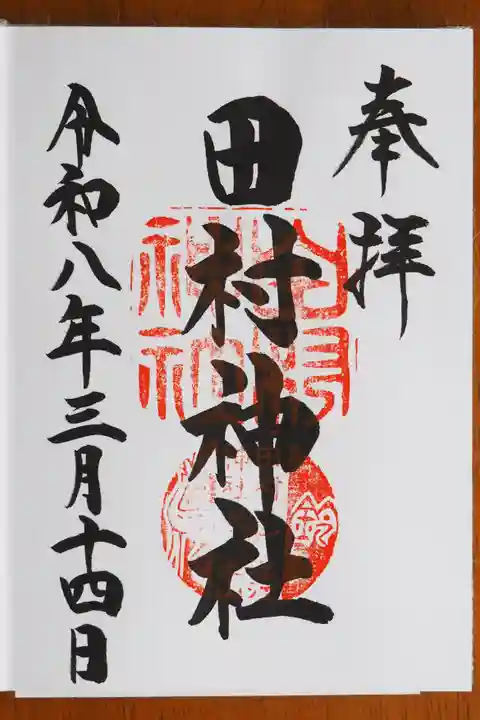 奉拝
田村神社
令和八年三月十四日